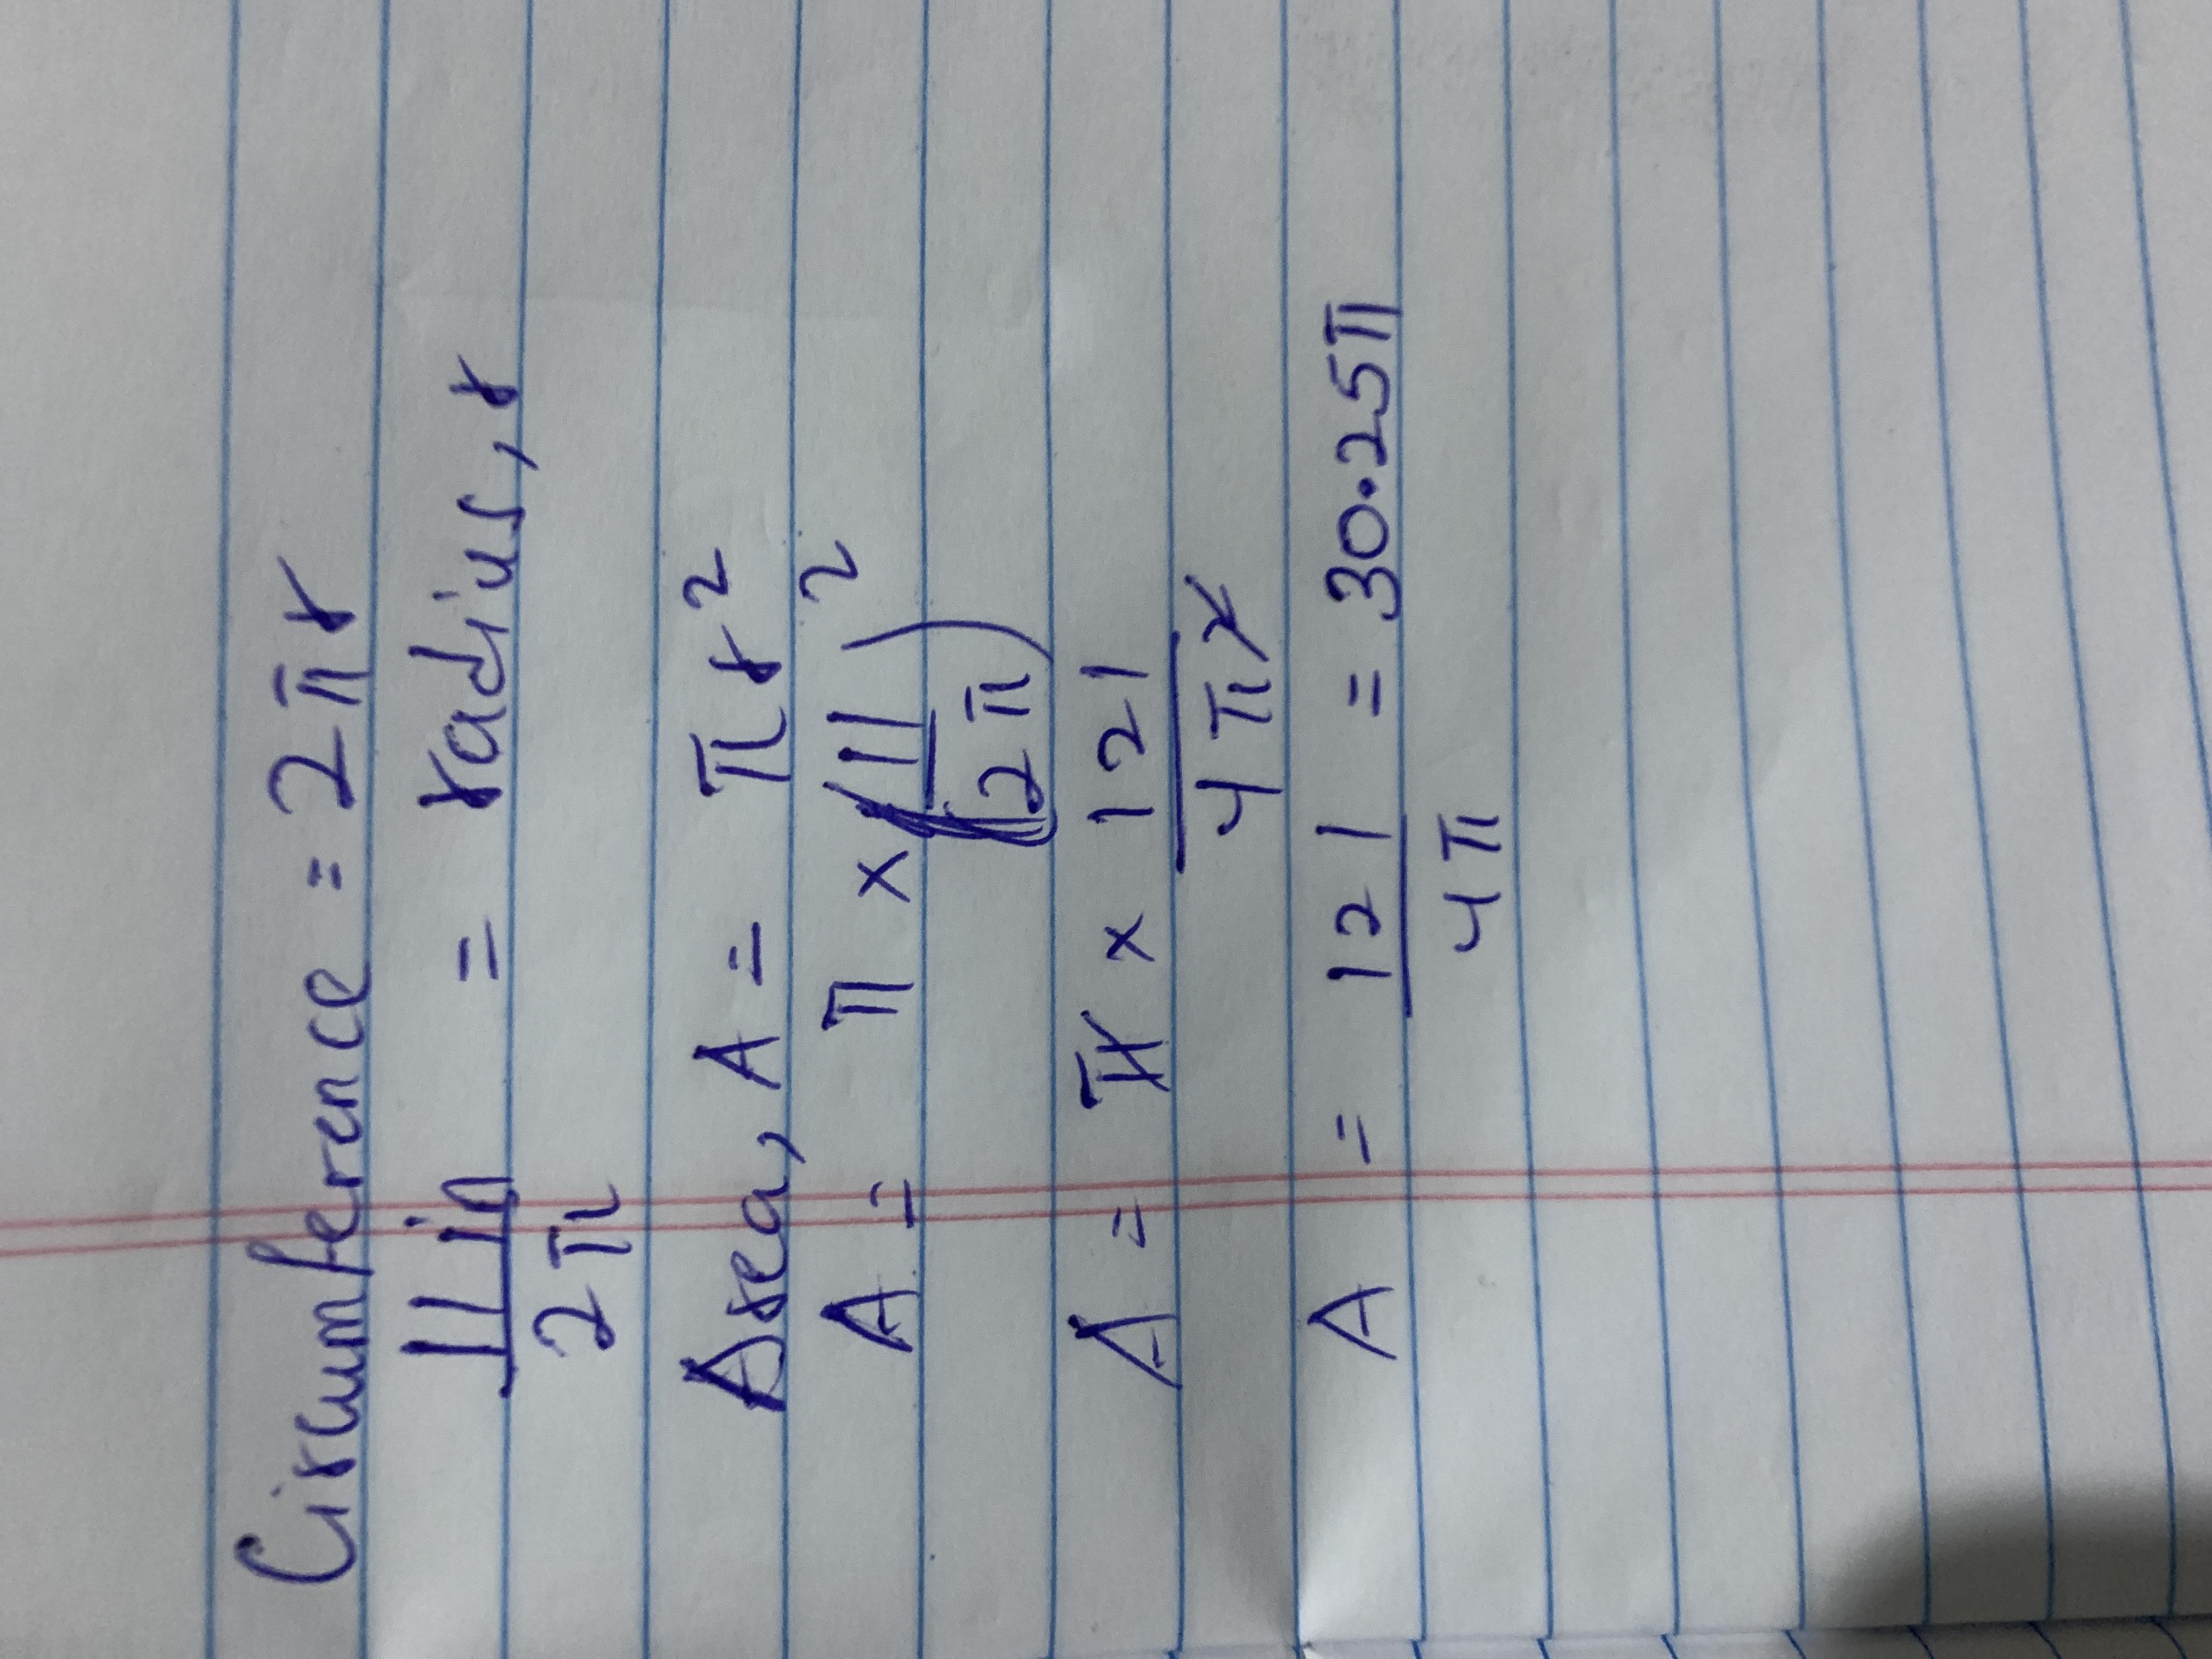 Circumference = 2πr
11in/2π = radius, r
Area, A = πr²
A = π × (11/2π)²
A = π × 121/4π²
A = 121/4π = 30.25π